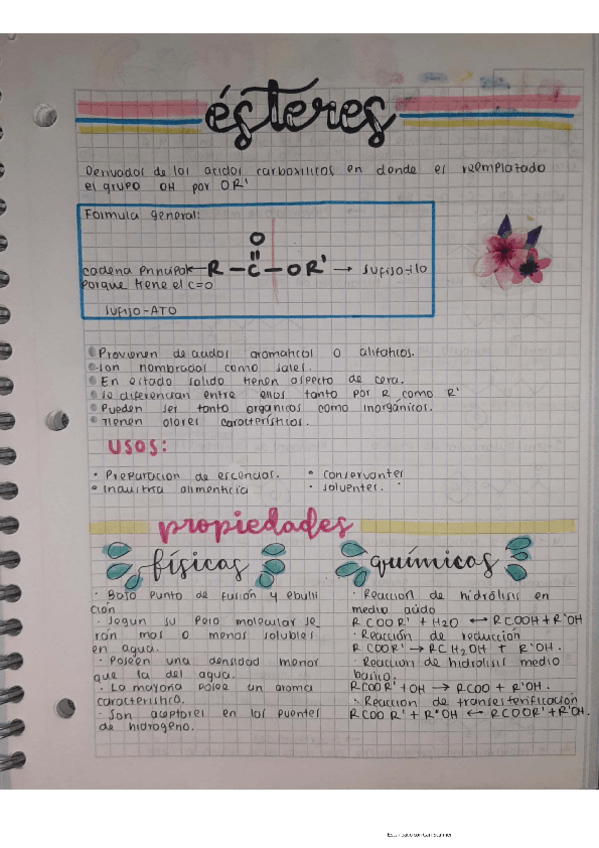 ésteres
Derivados de los acidos carboxilicos en donde es reemplazado
el grupo OH por OR'
Formula general:
O
cadena principal R – C – OR' → sufijo-ilo
porque tiene el C=O
sufijo-ATO
Provienen de acidos aromaticos o alifaticos.
son nombrados como sales.
En estado solido tienen aspecto de cera.
se diferencian entre ellos tanto por R como R'
Pueden ser tanto orgánicos como inorgánicos.
Tienen olores característicos.
USOS:
· Preparacion de escencias.
· Industria alimenticia
· conservantes
· solventes.
propiedades
físicas
· Bajo punto de fusión y ebulli
ción
· Segun su peso molecular se
rán mas o menos solubles
en agua.
· Poseen una densidad menor
que la del agua.
· La mayoria posee un aroma
caracteristico.
· Son aceptores en los puentes
de hidrogeno.
químicas
· Reaccion de hidrólisis en
medio acido
R COO R' + H2O ↔ R COOH + R'OH
· Reacción de reducción
R COOR' → RCH2OH + R'OH.
· Reaccion de hidrolisis medio
basico.
RCOOR' + OH → RCOO + R'OH.
· Reaccion de transesterificación
RCOO R' + R"OH ↔ RCOOR' + R'OH.